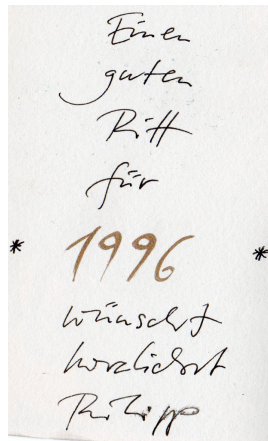 Einen
guten
Ritt
für
* 1996 *
wünscht
herzlichst
Philipp